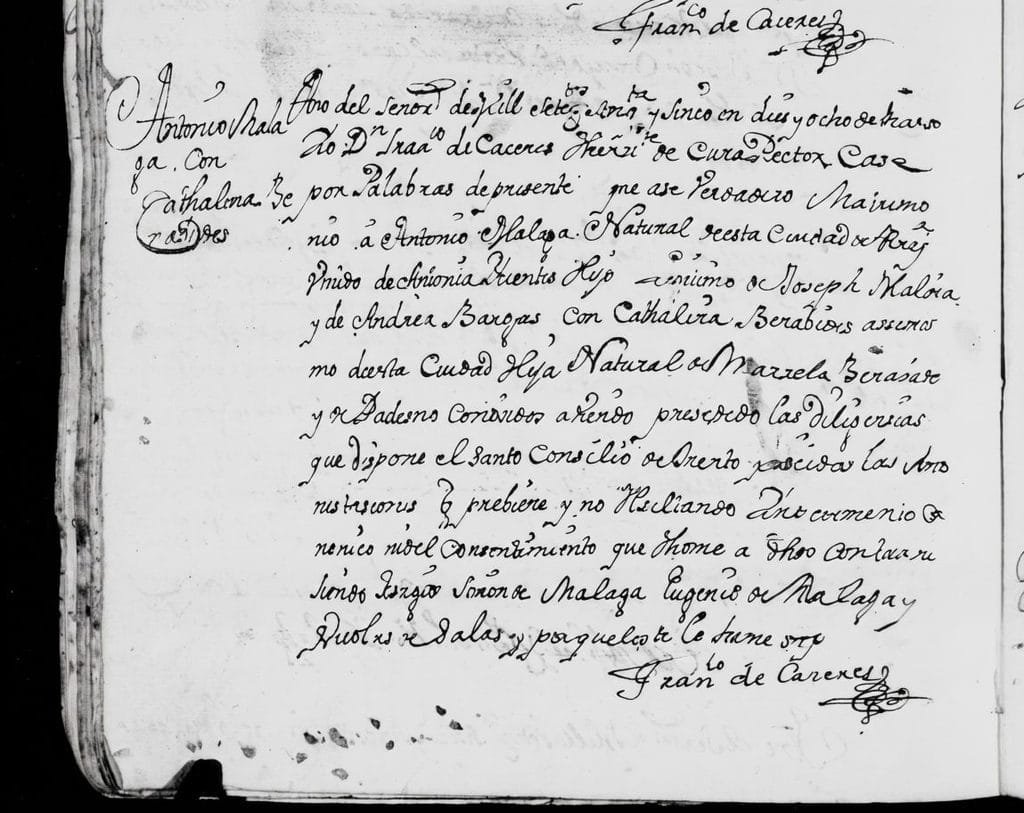 Fran.co de Caceres
Antonio Mala
ga. Con
Cathalina Be
nabides
Ano del señor de Mill Setes y sinco en dies y ocho de Marso
Yo Dn Fran.co de Caceres theni.te de Cura Rector Case
por Palabras de presente que ase Verdadero Matrimo
nio a Antonio Malaga Natural de esta Ciudad de
Viudo de Antonia Fuentes Hijo de Joseph Malaga
y de Andrea Bargas con Cathalina Benabides assimis
mo desta Ciudad Hija Natural de Marzela
y de Padre no Conosidos aviendo presedido las Diligensias
que dispone el Santo Consilio de Trento las Amo
nestasiones q prebiene y no Resultando
nonico ni del Consentimiento que thome a dhos Contrayen
siendo tesgos de Malaga Eugenio de Malaga y
Nicolas de Salas y porque Coste lo firme
Fran.co de Caceres